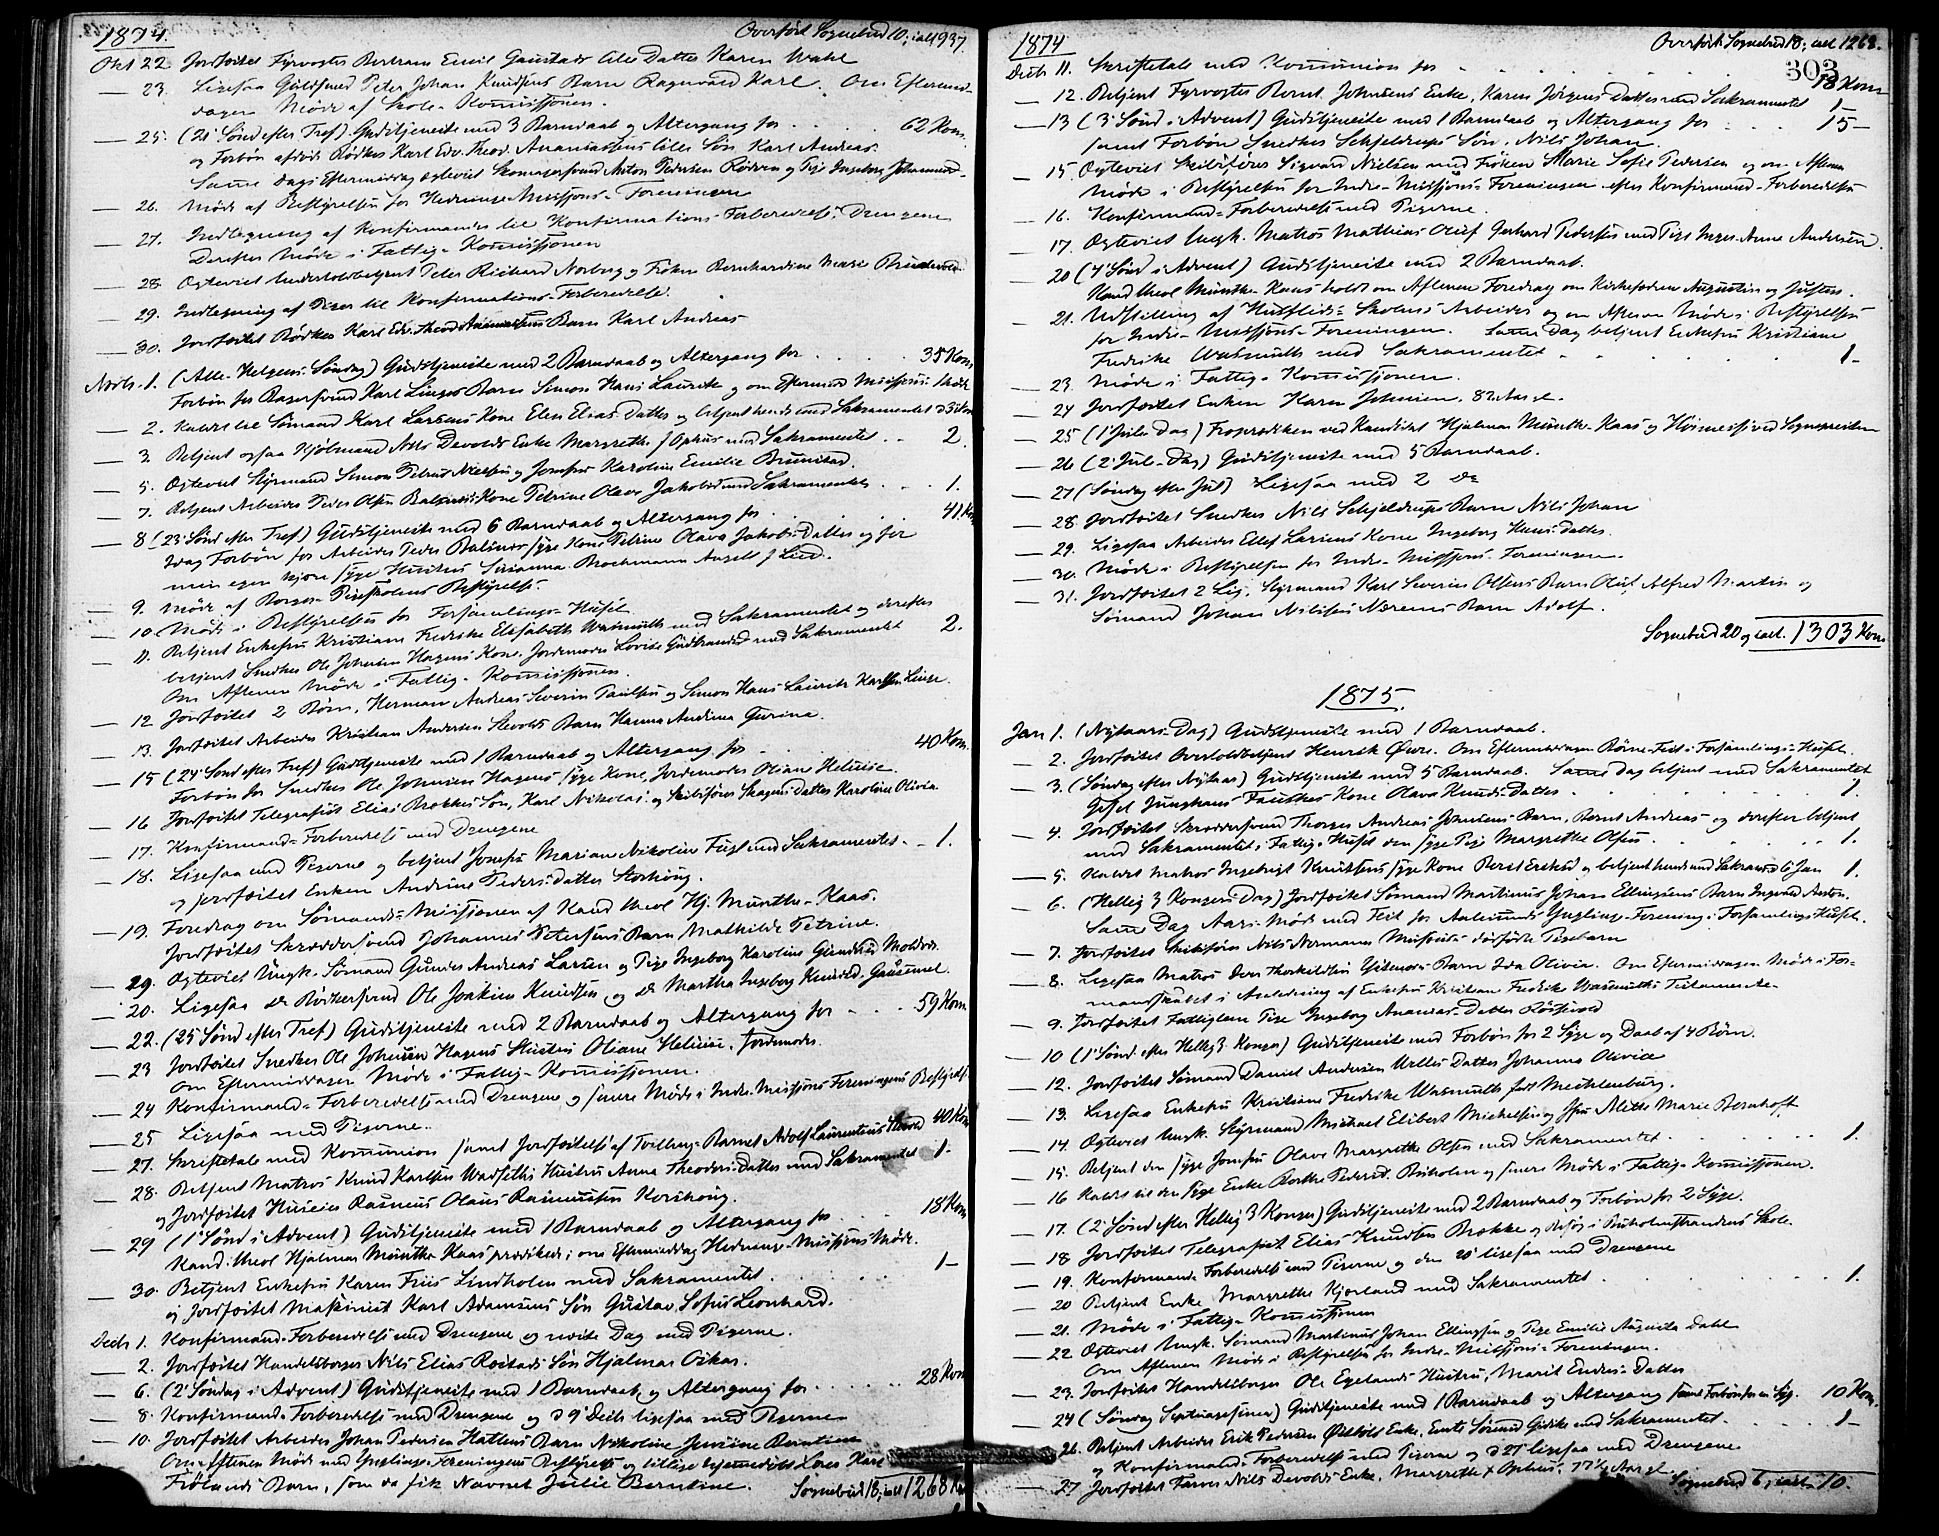 1874.
Overført Sognebud 10; ialt 937.
Okt 22. Jordfæstet Fyrvogter Bertram Emil Gaustads lille Datter Karen Wahl
— 23. Ligesaa Guldsmed Peter Johan Knudsens Barn Ragnvald Karl. Om Eftermid-
dagen Møde af Skole-Komissjonen.
— 25. (21 Sønd efter Tref) Gudstjeneste med 3 Barndaab og Altergang for 62 Kom.
og Forbøn afdøde Bødker Karl Edv. Theod. Ananiassens lille Søn Karl Andreas.
Samme Dags Eftermiddag Ægteviet Skomagersvend Anton Pedersen Rødven og Pige Ingeborg Johannesd.
— 26. Møde af Bestyrelsen for Hednings-Missjons-Foreningen
— 27. Indtegning af Konfirmander til Konfirmations-Forberedelse: Drengene
Derefter Møde i Fattig-Komissjonen
— 28. Ægteviet UnderToldbetjent Peter Richard Norberg og Frøken Bernhardine Marie
— 29. Indtegning af Piger til Konfirmations-Forberedelse.
— 30. Jordfæstet Bødker Karl Edv. Theod Ananiassens Barn Karl Andreas
Novb. 1. (Alle-Helgens-Søndag) Gudstjeneste med 2 Barndaab og Altergang for 35 Kom
Forbøn for Bagersvend Karl Linges Barn Simon Hans Lauritz og om Eftermid Missjons-Møde
— 2. Kaldet til Sømand Karl Larsens Kone Elen Elias-Datter og betjent hende med Sakramentet
— 3. Betjent ogsaa Kjøbmand Nils Devolds Enke Margrethe f Ophus med Sakramentet 2.
— 5. Ægteviet Styrmand Simon Petrus Nielsen og Jomfru Karoline Emilie Brunstad.
— 7. Betjent Arbeider Peder Olsen Balsnes' Kone Petrine Olava Jakobsd med Sakramentet 1.
— 8 (23 Sønd efter Tref) Gudstjeneste med 6 Barndaab og Altergang for 41 Kom
Idag Forbøn for Arbeider Peder Balsnes syge Kone Petrine Olava Jakobs-Datter og for
min egen kjære syge Hustru Susanna Brochmann Angell f Lied.
— 9. Møde af Borger-Pigeskolens Bestyrelse.
— 10. Møde i Bestyrelsen for Forsamlings-Huset.
— 11. Betjent Enkefru Kristiane Fredrike Elisabeth Wasmuth med Sakramentet og derefter
betjent Snedker Ole Johnsen Hagens Kone, Jordemoder med Sakramentet 2.
Om Aftenen Møde i Fattig-Komissjonen.
— 12 Jordfæstet 2 Børn, Herman Andreas Severin Paulsen og Simon Hans Lauritz Karlsen Linge.
— 13. Jordfæstet Arbeider Kristian Andersen Stevolds Barn Hanna Andrina Gurina.
— 15 (24 Sønd efter Tref) Gudstjeneste med 1 Barndaab og Altergang for 40 Kom.
Forbøn for Snedker Ole Johnsens Hagens syge Kone, Jordemoder Oliane Helvise.
— 16 Jordfæstet Telegrafist Elias Brokkes Søn, Karl Nikolai og Skibsfører Skagens Datter Karoline Olivia
— 17. Konfirmand-Forberedelse med Drengene
— 18. Ligesaa med Pigerne og betjent Jomfru Mariane Nikoline Fugl med Sakramentet 1.
og jordfæstet Enken Andrine Peders-Datter Storhoug.
— 19. Foredrag om Sømands-Missjonen af Kand theol Hj. Munthe-Kaas.
Jordfæstet Skræddersvend Johannes Petersens Barn Mathilde Petrine.
— 29. Ægteviet Ungk. Sømand Gunder Andreas Larsen og Pige Ingeborg Karoline Gundersd Moldvær.
— 20. Ligesaa do Bødkersvend Ole Joakim Knudsen og do Martha Ingeborg Knudsd. Gausnes.
— 22. (25 Sønd efter Tref) Gudstjeneste med 2 Barndaab og Altergang for 59 Kom.
— 23 Jordfæstet Snedker Ole Johnsen Hagens Hustru Oliane Helvise, Jordemoder.
Om Eftermiddagen Møde i Fattig-Komissjonen.
— 24 Konfirmand-Forberedelse med Drengene og senere Møde i Indre-Missjons-Foreningens Bestyrelse
— 25 Ligesaa med Pigerne.
— 27. Skriftetale med Komunion samt Jordfæstelse af Tvilling-Barnet Adolf Laurentius 40 Kom
— 28. Betjent Matros Knud Karlsen Wadseths Hustru Anna Theodors-Datter med Sakramentet 1.
og Jordfæstet Huseier Rasmus Olaus Rasmussen Korshoug.
— 29 (1 Sønd i Advent) Gudstjeneste med 1 Barndaab og Altergang for 18 Kom
Kand. theol Hjalmar Munthe-Kaas prædikede; om Eftermiddag Hednings-Missjons Møde.
— 30. Betjent Enkefru Karen Friis Lindholm med Sakramentet 1—
og Jordfæstet Maskinist Karl Adamsens Søn Gustav Sofus Leonhard.
Decb 1. Konfirmand-Forberedelse med Drengene og næste Dag med Pigerne.
— 2. Jordfæstet Handelsborger Nils Elias Roitads Søn Hjalmar Oskar.
— 6. (2 Søndag i Advent) Gudstjeneste med 1 Barndaab og Altergang for 28 Kom
— 8. Konfirmand-Forberedelse med Drengene og d 9 Decb ligesaa med Pigerne
— 10. Jordfæstet Arbeider Johan Pedersen Hattens Barn Nikoline Jensine Berntine
Om Aftenen Møde med Ynglings-Foreningens Bestyrelse og tillige hjemmedøbt Lars
Frølands Barn, som da fik Navnet Julie Berntine.
Sognebud 18; ialt 1268 Kom
1874
Overført: Sognebud 18; ialt 1268.
303
Decb 11. Skriftetale med Komunion for 18 Kom
— 12. Betjent Fyrvogter Bernt Johnsens Enke, Karen Jørgens Datter med Sakramentet 1—
— 13 (3 Sønd i Advent) Gudstjeneste med 1 Barndaab og Altergang for 15—
samt Forbøn Snedker Schjelderups Søn, Nils Johan.
— 15. Ægteviet Skibsfører Sigvard Nielsen med Frøken Marie Sofie Pedersen og om Aftenen
Møde i Bestyrelsen for Indre-Missjons-Foreningen efter Konfirmand-Forberedelse
— 16. Konfirmand-Forberedelse med Pigerne.
— 17. Ægteviet Ungk. Matros Mathias Oluf Gerhard Pedersen med Pige Inger Anne Andersen.
— 20 (4 Sønd i Advent) Gudstjeneste med 2 Barndaab.
Kand theol Munthe-Kaas holdt om Aftenen Foredrag om Kirkefædrene Augustin og Justin.
— 21. Udstilling af Husflids-Skolens Arbeider og om Aftenen Møde i Bestyrelsen
for Indre-Missjons-Foreningen. Samme Dag betjent Enkefru Kristiane
Fredrike Wasmuth med Sakramentet 1—
— 23. Møde i Fattig-Komissjonen.
— 24 Jordfæstet Enken Karen Johnsen, 82 Aar gl.
— 25 (1 Jule-Dag) Froprædiken ved Kandidat Hjalmar Munthe-Kaas og Høimesse ved Sognepræsten
— 26 (2 Jule-Dag) Gudstjeneste med 5 Barndaab.
— 27 (Søndag efter Jul) Ligesaa med 2 do
— 28. Jordfæstet Snedker Nils Schjeldrups Barn Nils Johan
— 29. Ligesaa Arbeider Ellef Larsens Kone Ingeborg Hans-Datter.
— 30. Møde i Bestyrelsen for Indre-Missjons-Foreningen.
— 31. Jordfæstet 2 Lig, Styrmand Karl Severin Olsens Barn Oluf Alfred Martin og
Sømand Johan Nilssens Nærems Barn Adolf.
Sognebud 20 og ialt 1303 Kom.
1875.
Jan 1. (Nytaars-Dag) Gudstjeneste med 1 Barndaab.
— 2. Jordfæstet Overtoldbetjent Henrik Øwre. Om Eftermiddagen Børne-Fest i Forsamlings-Huset.
— 3. (Søndag efter Nytaar) Gudstjeneste med 5 Barndaab. Samme Dag betjent med Sakramentet
Gesel Junghans Fauskes Kone Olava Knuds-Datter 1.
— 4. Jordfæstet Skræddersvend Thorger Andreas Johnsens Barn, Bernt Andreas og derefter betjent
med Sakramentet i Fattig-Huset den syge Pige Margrethe Olsen 1.
— 5. Kaldet Matros Ingebrigt Knutsens syge Kone Beret Eriksd. og betjent hende med Sakram d 6 Jan 1.
— 6. (Hellig 3 Kongers-Dag) Jordfæstet Sømand Martinus Johan Ellingsens Barn Ingvald Anton.
Samme Dag Aars-Møde med Fest for Aalesunds Ynglings-Forening i Forsamlings-Huset.
— 7. Jordfæstet Skibsfører Nils Normann dødfødte Pigebarn
— 8. Ligesaa Matros Iver Thorkildsen Barn Ida Olivia. Om Eftermiddagen Møde i For-
mandskabet i Anledning af Enkefru Kristiane Fredrike Wasmuths Testamente.
— 9. Jordfæstet Fattiglem Pige Ingeborg Ananias-Datter
— 10 (1 Sønd. efter Hellig 3 Konger) Gudstjeneste med Forbøn for 2 Syge og Daab af 4 Børn.
— 12. Jordfæstet Sømand Daniel Andersen Datter Johanna Olivia
— 13. Ligesaa Enkefru Kristiane Fredrike Wasmuth født Mechlenburg.
— 14. Ægteviet Ungk. Styrmand Michael Elibert Michelsen og Jfru Mette Marie Bernhoft
— 15. Betjent den syge Jomfru Olava Margrethe Olsen med Sakramentet 1.
— 16 Kaldet til den syge Enke Dorthe Pedersd. Buholm og senere Møde i Fattig-Komissjonen.
— 17. (2 Sønd efter Hellig 3 Konger) Gudstjeneste med 2 Barndaab og Forbøn for 2 Syge.
— 18 Jordfæstet Telegrafist Elias Knudsen Brokke og Besøg i Buholmstrandens Skole.
— 19. Konfirmand-Forberedelse med Pigerne og den 20 ligesaa med Drengene
— 20 Betjent Enke Margrethe Kjorland med Sakramentet 1.
— 21. Møde i Fattig-Komissjonen
— 22 Ægteviet Ungk. Sømand Martinus Johan Ellingsen og Pige Emilie Augusta Dahl
Om Aftenen Møde i Bestyrelsen for Indre-Missjons-Foreningen.
— 23. Jordfæstet Handelsborger Ole Egelands Hustru, Marit Enders-Datter
— 24 (Søndag Septuagesima) Gudstjeneste med 1 Barndaab og Altergang samt Forbøn for en Syg. 10 Kom.
— 26. Betjent Arbeider Erik Pedersen Enke, med Sakramentet 1—
og Konfirmand-Forberedelse med Pigerne og d 27 ligesaa med Drengene
— 27 Jordfæstet Farver Nils Devolds Enke, Margrethe f Ophus, 77½ Aar gl.
Sognebud 6, ialt 10.